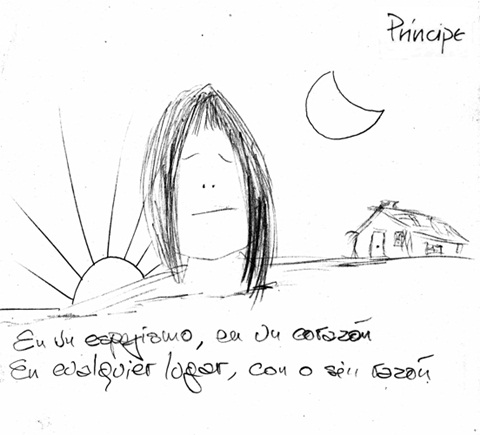 Príncipe
En un espejismo, en un corazón
En cualquier lugar, con o sin razón.